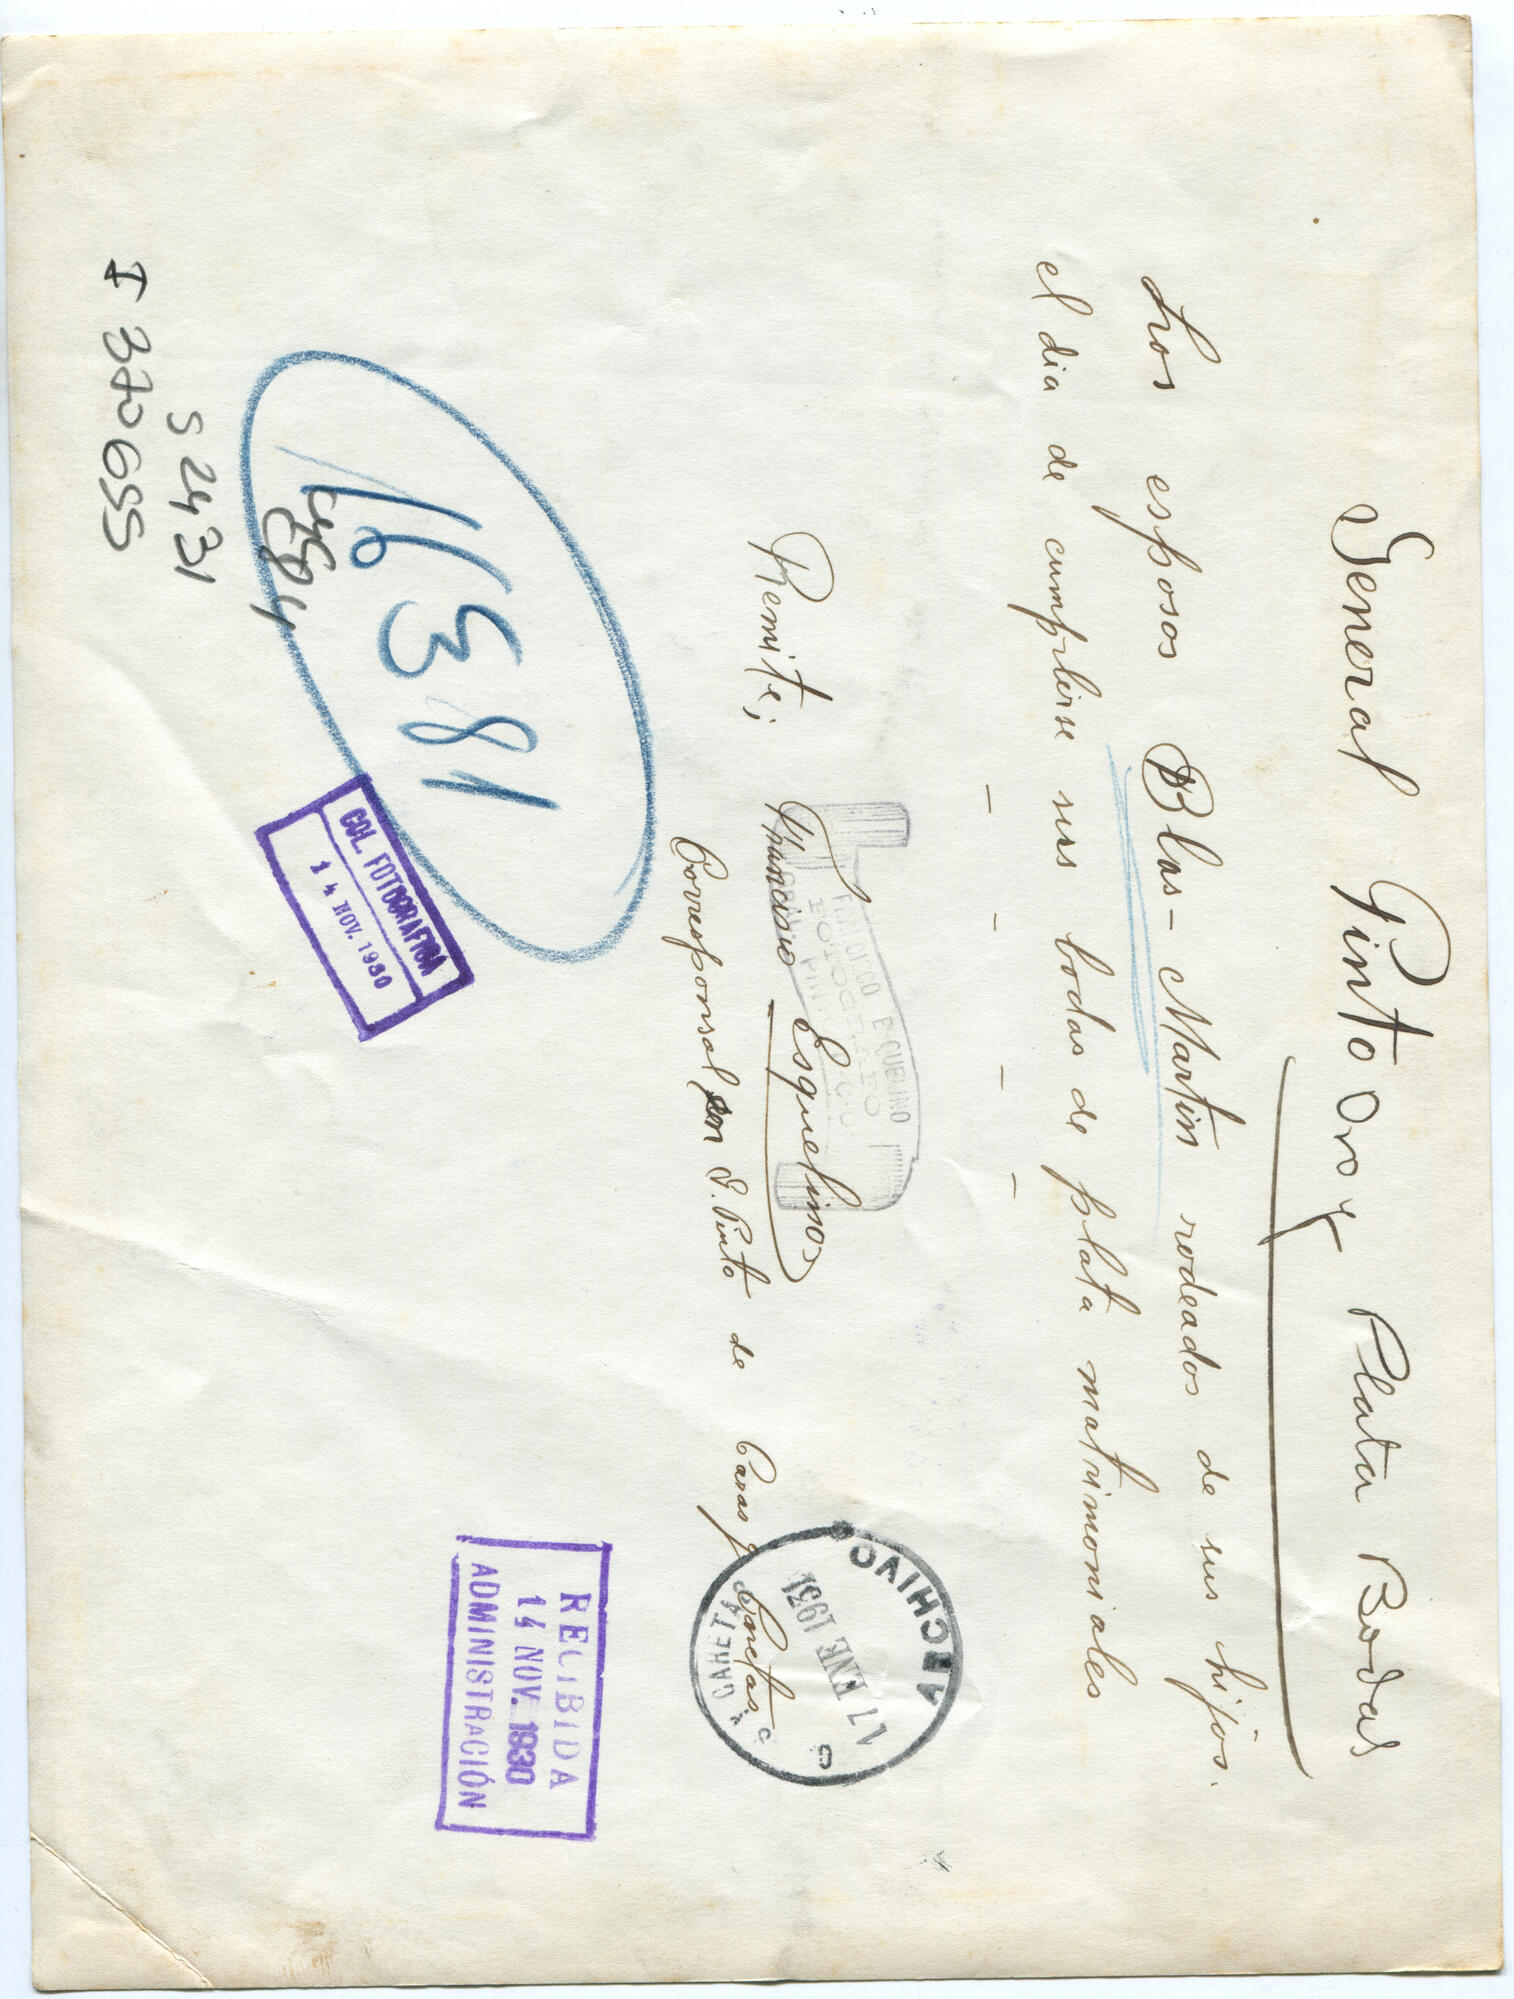 General Pinto Oro y Plata Bodas
Los esposos Blas-Martin rodeados de sus hijos.
el dia de cumplirse sus bodas de plata matrimoniales
Remite; Francisco Esquelinos
Corresponsal en G. Pinto de Caras y Caretas
FOTOGRAFO
ARCHIVO
17 ENE 1931
CARETAS
16381
COL. FOTOGRAFICA
14 NOV. 1930
RECIBIDA
14 NOV. 1930
ADMINISTRACIÓN
S 2431
I 370655